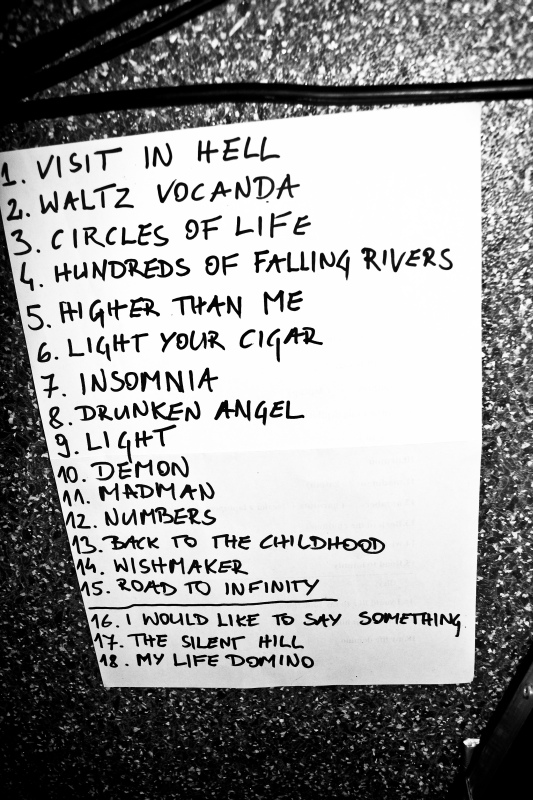 1. VISIT IN HELL
2. WALTZ VOCANDA
3. CIRCLES OF LIFE
4. HUNDREDS OF FALLING RIVERS
5. HIGHER THAN ME
6. LIGHT YOUR CIGAR
7. INSOMNIA
8. DRUNKEN ANGEL
9. LIGHT
10. DEMON
11. MADMAN
12. NUMBERS
13. BACK TO THE CHILDHOOD
14. WISHMAKER
15. ROAD TO INFINITY
16. I WOULD LIKE TO SAY SOMETHING
17. THE SILENT HILL
18. MY LIFE DOMINO